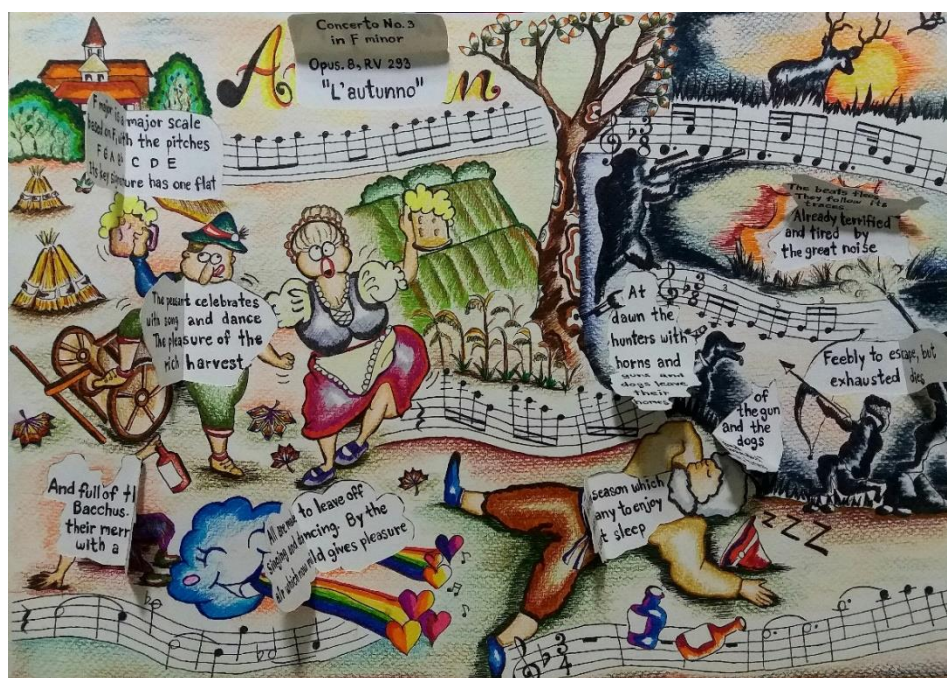 Concerto No.3
in F minor
Opus. 8, RV 293
"L'autunno"
A n
F major is a major scale
based on F, with the pitches
F G A C D E
Its key signature has one flat
The peasant celebrates
with song and dance
The pleasure of the
rich harvest
And full of
Bacchus.
their merr
with a
All are made to leave off
singing and dancing. By the
air which now mild gives pleasure
season which
any to enjoy
t sleep
ZZZ
3
4
At
dawn the
hunters with
horns and
guns and
dogs leave
their
homes
The beats
They follow its
traces
Already terrified
and tired by
the great noise
of
the gun
and the
dogs
Feebly to escape, but
exhausted dies